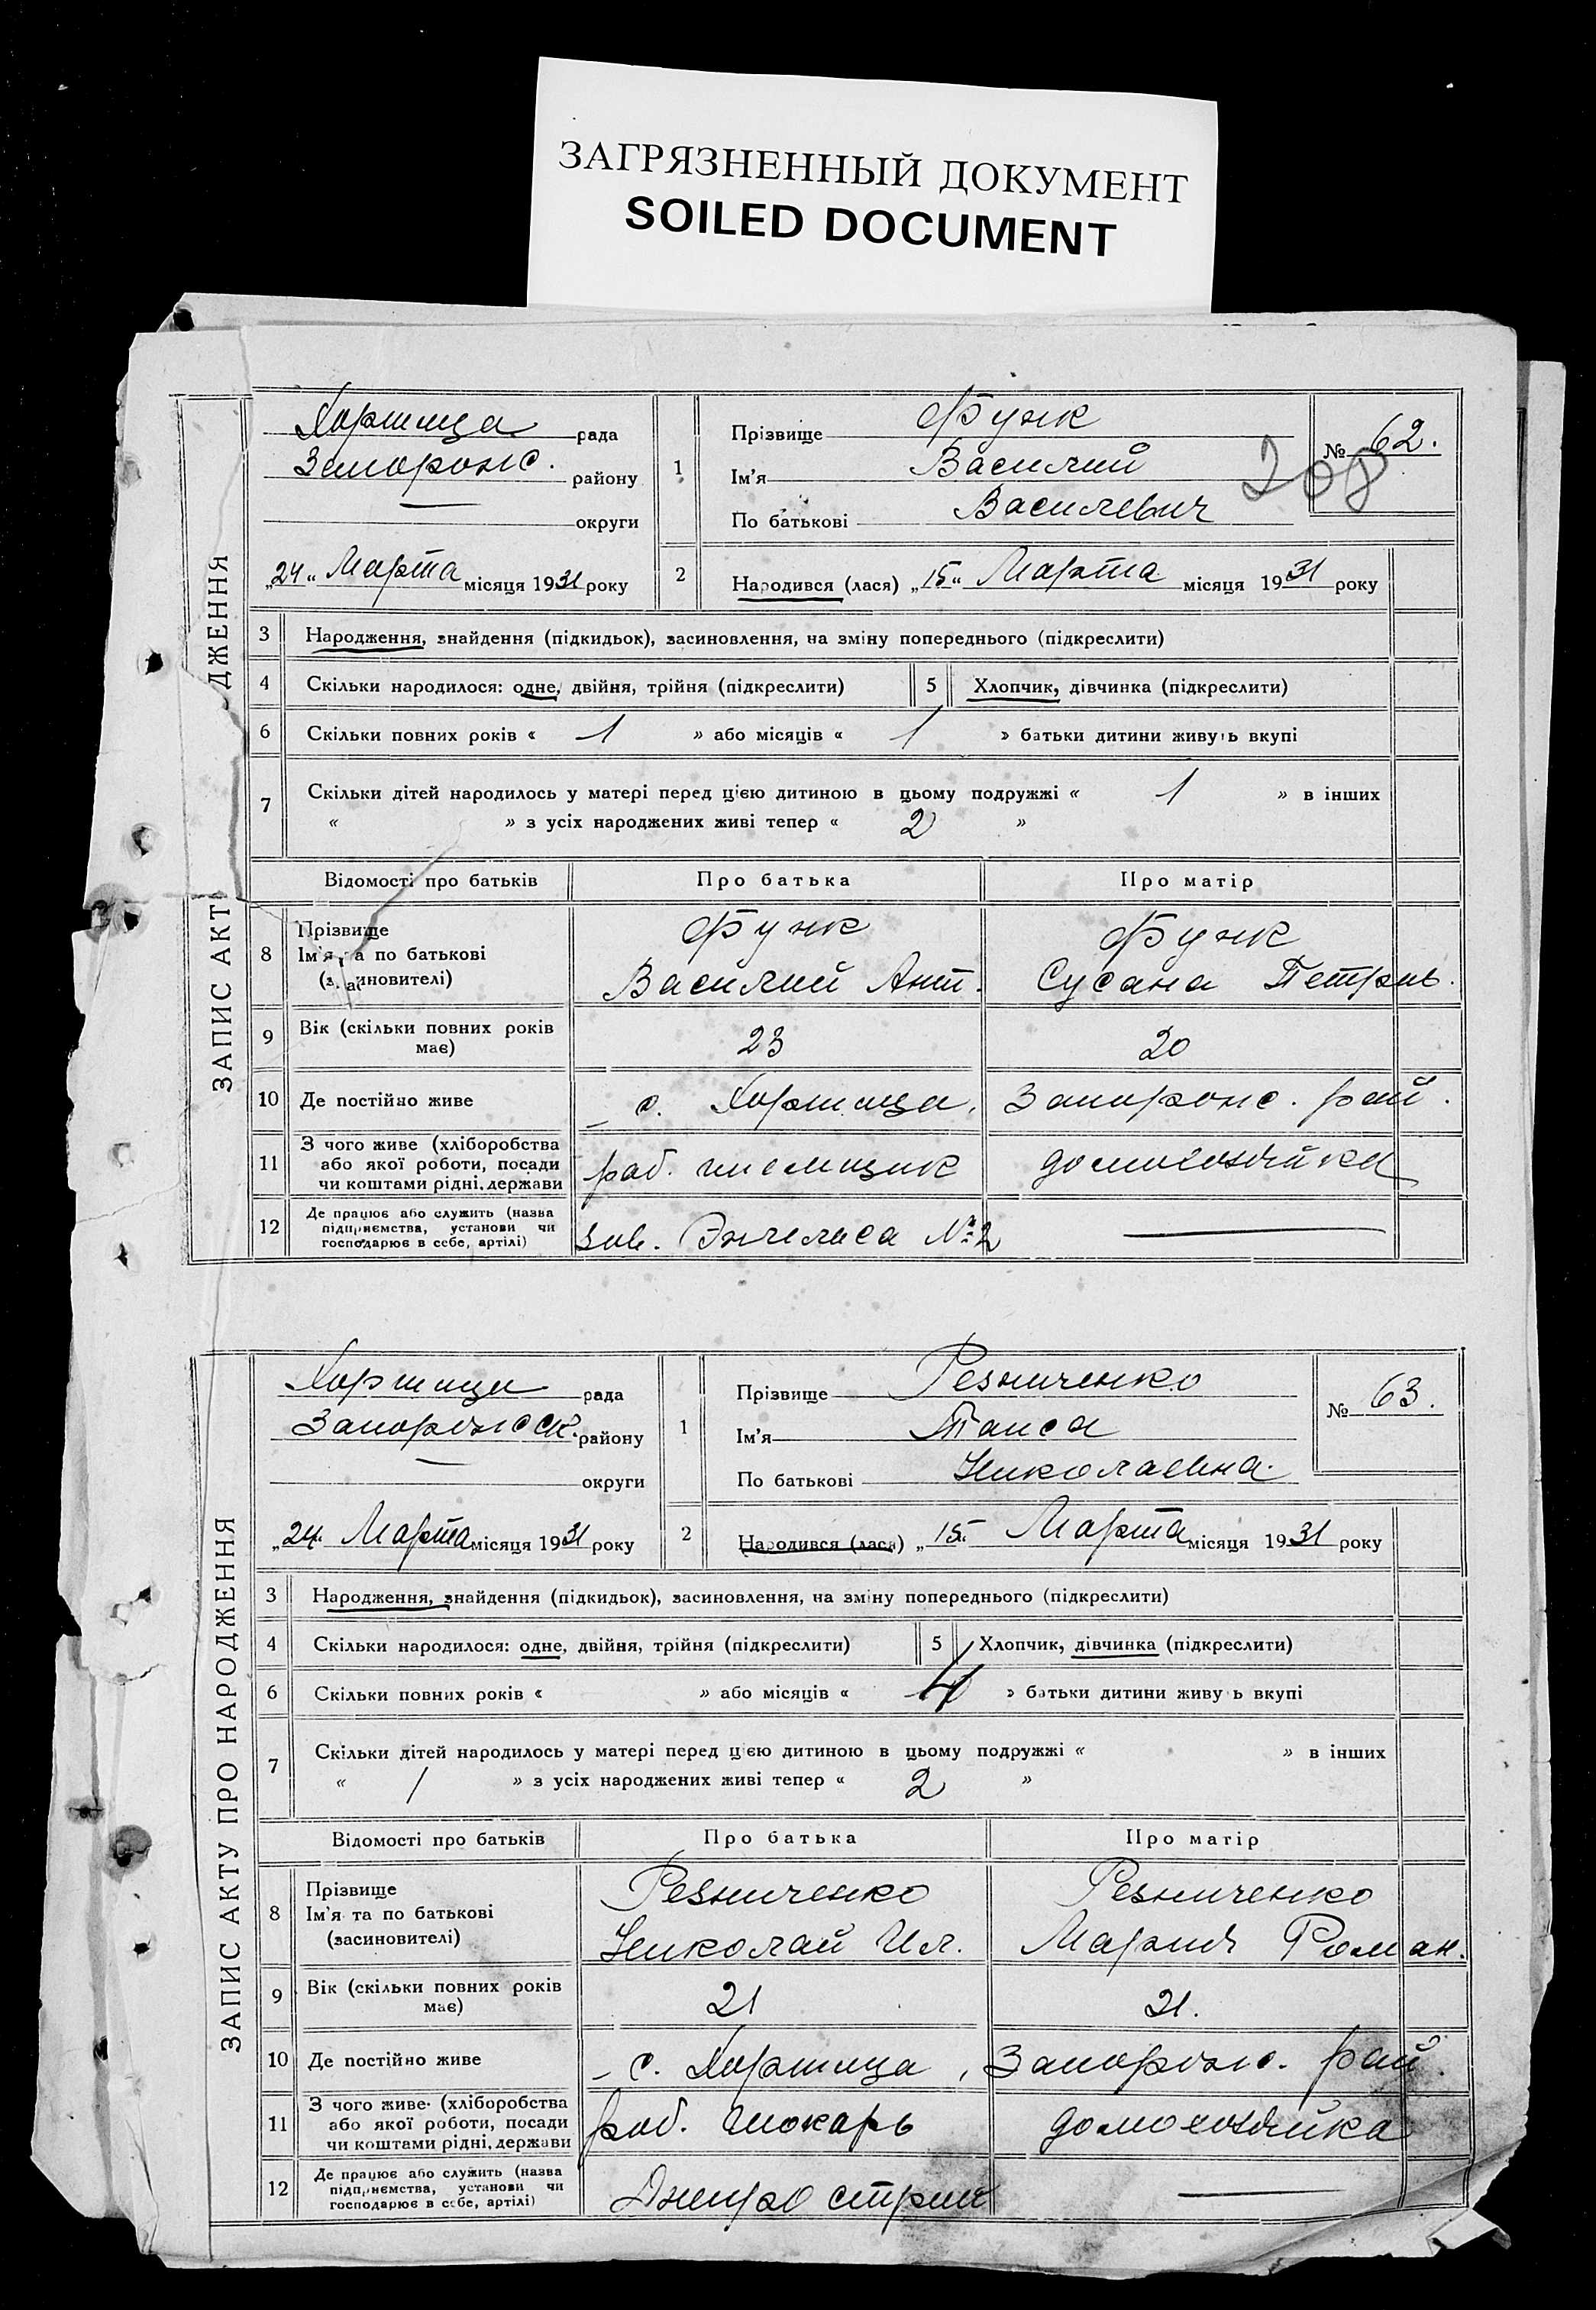 ЗАГРЯЗНЕННЫЙ ДОКУМЕНТ
SOILED DOCUMENT
ЗАПИС АКТ ДЖЕННЯ
Хортица рада
Запорожс. району
— округи
„24“ Марта місяця 1931 року
1
Прізвище Функ
Ім'я Василий
По батькові Василевич
№ 62.
208
2
Народився (лася) „15“ Марта місяця 1931 року
3 Народження, знайдення (підкидьок), засиновлення, на зміну попереднього (підкреслити)
4 Скільки народилося: одне, двійня, трійня (підкреслити) 5 Хлопчик, дівчинка (підкреслити)
6 Скільки повних років « 1 » або місяців « 1 » батьки дитини живуть вкупі
7 Скільки дітей народилось у матері перед цією дитиною в цьому подружжі « 1 » в інших
« » з усіх народжених живі тепер « 2 »
Відомості про батьків Про батька Про матір
8 Прізвище Функ Функ
Ім'я та по батькові Василий Ант. Сусана Петровь.
(засиновителі)
9 Вік (скільки повних років має) 23 20
10 Де постійно живе с. Хортица, Запорожс. рай.
11 З чого живе (хліборобства або якої роботи, посади чи коштами рідні, держави раб. домохозяйка
12 Де працює або служить (назва підприємства, установи чи господарює в себе, артілі) зав. Энгельса № 2 —
ЗАПИС АКТУ ПРО НАРОДЖЕННЯ
Хортица рада
Запорожск. району
— округи
„24“ Марта місяця 1931 року
1
Прізвище Резниченко
Ім'я Таиса
По батькові Николаевна.
№ 63.
2
Народився (лася) „15“ Марта місяця 1931 року
3 Народження, знайдення (підкидьок), засиновлення, на зміну попереднього (підкреслити)
4 Скільки народилося: одне, двійня, трійня (підкреслити) 5 Хлопчик, дівчинка (підкреслити)
6 Скільки повних років « » або місяців « 4 » батьки дитини живуть вкупі
7 Скільки дітей народилось у матері перед цією дитиною в цьому подружжі « » в інших
« 1 » з усіх народжених живі тепер « 2 »
Відомості про батьків Про батька Про матір
8 Прізвище Резниченко Резниченко
Ім'я та по батькові Николай Ил. Мария Роман.
(засиновителі)
9 Вік (скільки повних років має) 21 21.
10 Де постійно живе с. Хортица, Запорожс. рай.
11 З чого живе (хліборобства або якої роботи, посади чи коштами рідні, держави раб. токарь домохозяйка
12 Де працює або служить (назва підприємства, установи чи господарює в себе, артілі) Днепрострой —